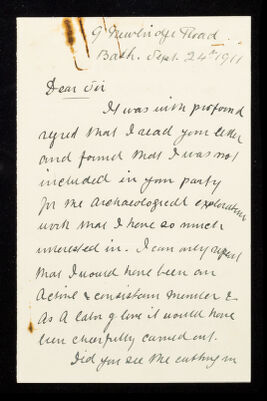 9 Newbridge Road.
Bath. Sept. 24th 1911
Dear Sir
It was with profound
regret that I read your letter
and found that I was not
included in your party
for the Archaeological exploration
work that I have so much
interested in. I can only regret
that I would have been an
Active & consistent member &
As A labor of love it would have
been cheerfully carried out.
Did you see the cutting in